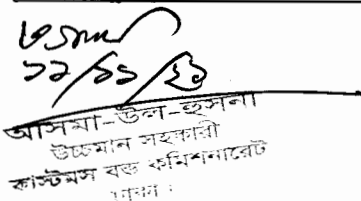 ১১/১১/২১
আসমা-উল-হুসনা
উচ্চমান সহকারী
কাস্টমস বন্ড কমিশনারেট
ঢাকা।